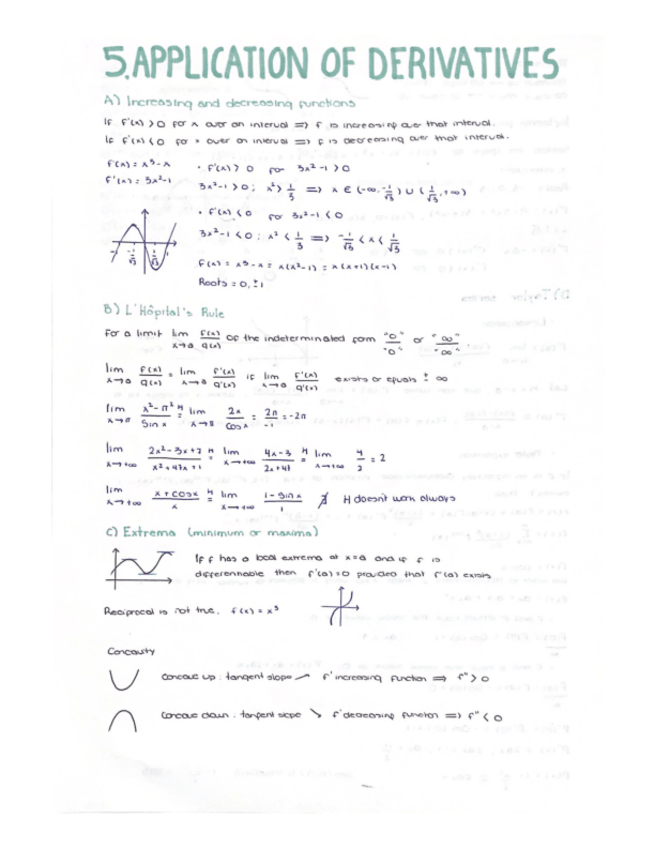 5.APPLICATION OF DERIVATIVES
A) Increasing and decreasing functions
If f'(x) > 0 for x over an interval => f is increasing over that interval.
If f'(x) < 0 for x over an interval => f is decreasing over that interval.
f(x) = x³-x
f'(x) = 3x²-1
• f'(x) > 0 for 3x²-1 > 0
3x²-1 > 0 ; x² > 1/3 => x ∈ (-∞, -1/√3) ∪ (1/√3, +∞)
• f'(x) < 0 for 3x²-1 < 0
3x²-1 < 0 ; x² < 1/3 => -1/√3 < x < 1/√3
f(x) = x³-x = x(x²-1) = x(x+1)(x-1)
Roots = 0, ±1
-1/√3 1/√3
B) L'Hôpital's Rule
For a limit lim x→a f(x)/g(x) of the indeterminated form "0"/"0" or "∞"/"∞"
lim x→a f(x)/g(x) = lim x→a f'(x)/g'(x) if lim x→a f'(x)/g'(x) exists or equals ± ∞
lim x→π x²-π²/Sin x H= lim x→π 2x/Cos x = 2π/-1 = -2π
lim x→+∞ 2x²-3x+7/x²+47x+1 H= lim x→+∞ 4x-3/2x+47 H= lim x→+∞ 4/2 = 2
lim x→+∞ x+cosx/x H= lim x→+∞ 1-Sin x/1 ∄ H doesn't work always
C) Extrema (minimum or maxima)
If f has a local extrema at x=a and if f is
differennable then f'(a)=0 provided that f'(a) exists
Reciprocal is not true, f(x) = x³
Concavity
Concave up : tangent slope ↗ f' increasing function => f'' > 0
Concave down : tangent slope ↘ f' decreasing function => f'' < 0